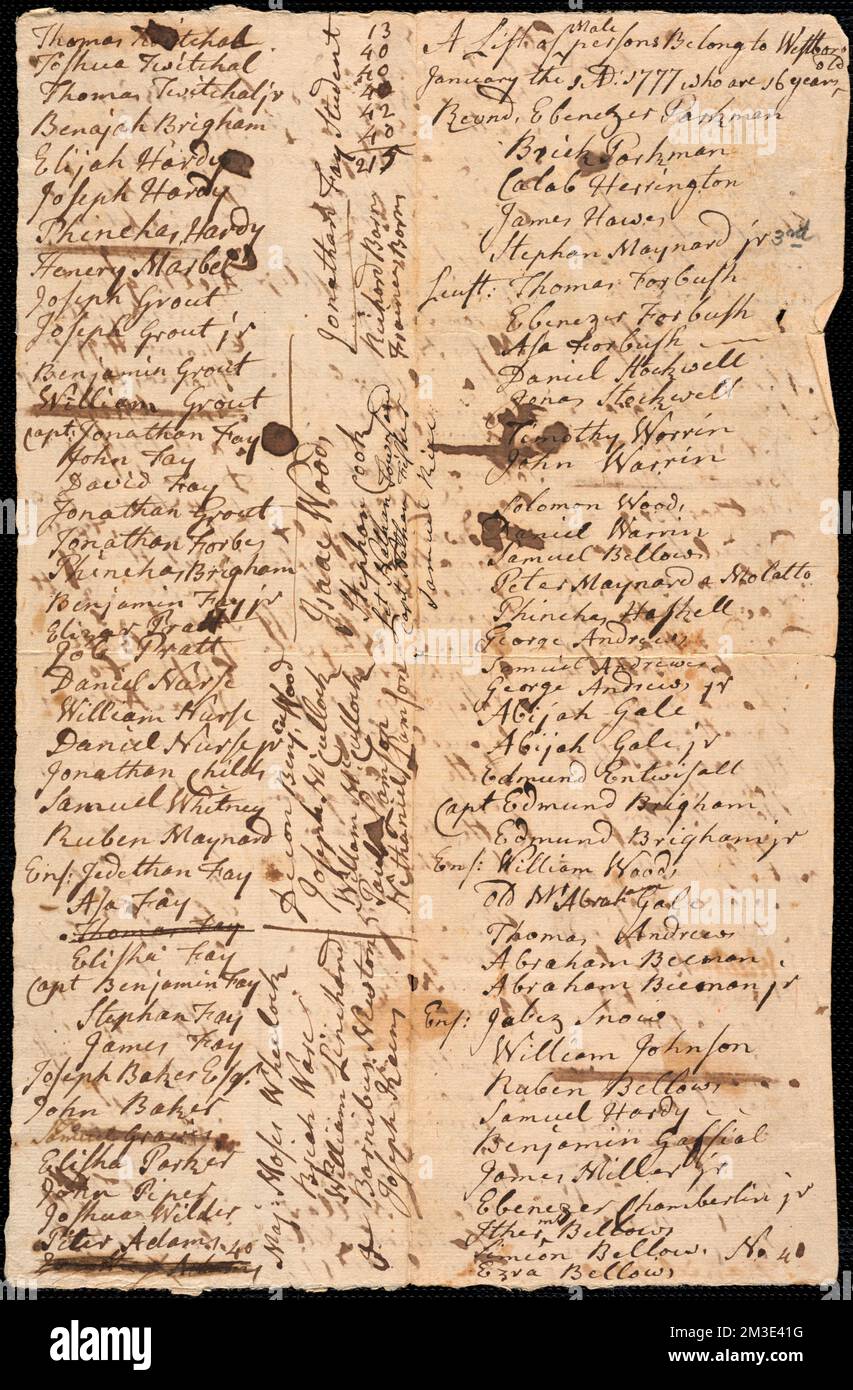 Thomas Twitchal
Joshua Twitchal
Thomas Twitchal jr
Benajah Brigham
Elijah Hardy
Joseph Hardy
Phinehas Hardy
Henery Marbel
Joseph Grout
Joseph Grout jr
Benjamin Grout
William Grout
Capt: Jonathan Fay
John Fay
David Fay
Jonathan Grout
Jonathan Forbes
Phinehas Brigham
Benjamin Fay jr
Elizer Pratt
Joel Pratt
Daniel Nurse
William Nurse
Daniel Nurse jr
Jonathan Childs
Samuel Whitney
Ruben Maynard
Ens: Jedethan Fay
Asa Fay
Thomas Fay
Elisha Fay
Capt Benjamin Fay
Stephan Fay
James Fay
Joseph Baker Esqr
John Baker
Elisha Parker
John Piper
Joshua Wilder
Peter Adams 40
13
40
40
40
42
40
215
Jonathan Fay Student
Richard Barns
Frances Barns
Isaac Wood
Stephan Cook
Lit Nathan Townsend
Capt Nathan Fisher
Samuel Rice
Decon Benj. Wood
Joseph McCulloch
William McCulloch
Paul Lamson
Nathaniel Lamson
Maj: Moses Wheelock
Beriah Ware
William Linehand
Barnibus Newton
Joseph Rains
A List of Male persons Belong to Westboro
January the 1 AD: 1777 who are 16 years old
Revnd, Ebenezer Parkman
Brick Parkman
Calab Herrington
James Hawes
Stephan Maynard jr 3rd
Lieut: Thomas Forbush
Ebenezer Forbush
Asa Forbush
Daniel Stockwell
Jonas Stockwell
Timothy Worrin
John Warrin
Solomon Wood,
Daniel Warrin
Samuel Bellows
Peter Maynard a Molatto
Phinehas Haskell
George Andrews
Samuel Andrews
George Andrews jr
Abijah Gale
Abijah Gale jr
Edmund Entwisall
Capt Edmund Brigham
Edmund Brigham jr
Ens: William Wood,
old Mr Abrah Gale
Thomas Andrews
Abraham Beeman
Abraham Beeman jr
Ens: Jabez Snow
William Johnson
Ruben Bellows
Samuel Hardy
Benjamin Gassial
James Millar jr
Ebenezer Chamberlin jr
Ithemr Bellows
Simeon Bellows No. 40
Ezra Bellows
alamy
Image ID: 2M3E41G
www.alamy.com